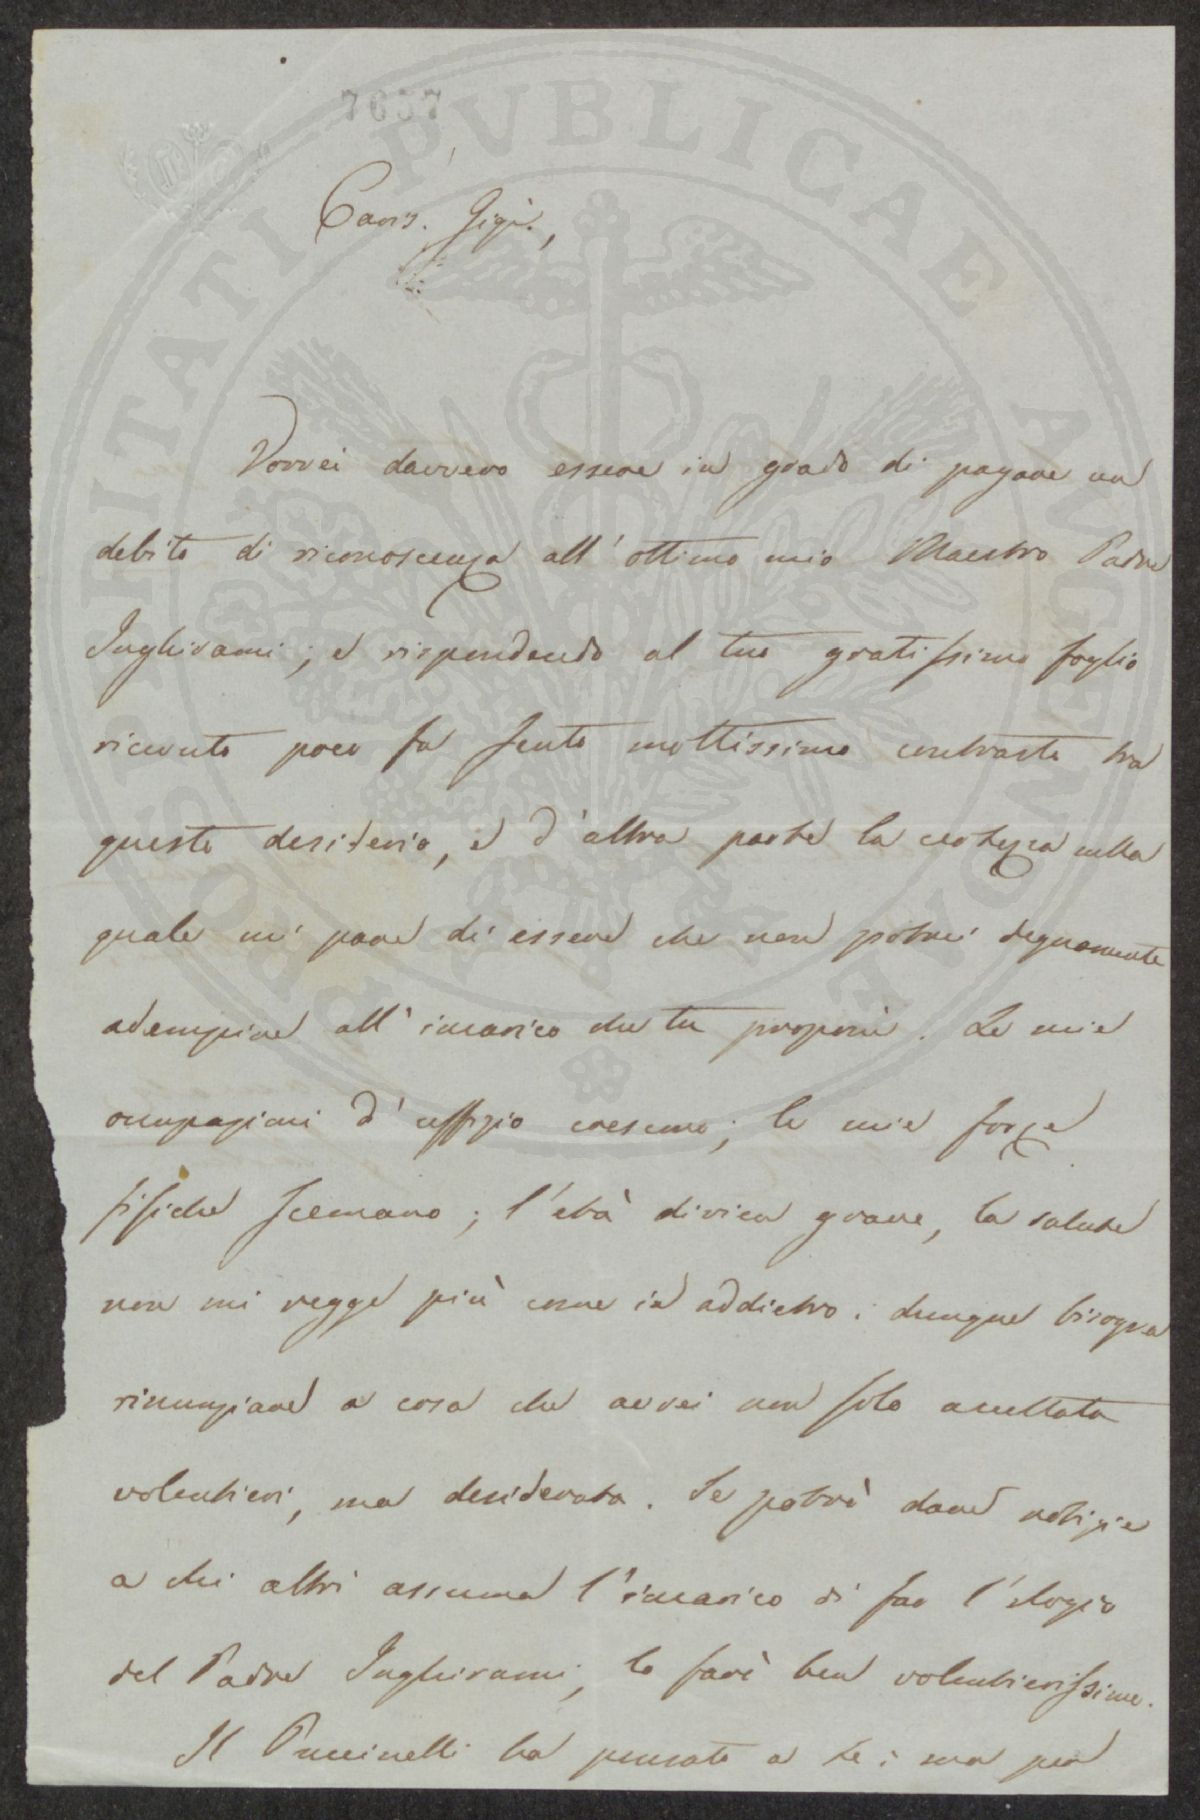 7657
PROSPERITATI PVBLICAE AVGENDAE
Cariss. Gigi,
Vorrei davvero essere in grado di pagare un
debito di riconoscenza all' ottimo mio Maestro Padre
Inghirami; e rispondendo al tuo gratissimo foglio
ricevuto poco fa sento moltissimo contrasto tra
questo desiderio, e d'altra parte la certezza nella
quale mi pare di essere che non potrei degnamente
adempiere all' incarico che tu proponi. Le mie
occupazioni d' uffizio crescono; le mie forze
fisiche scemano; l'età divien grave, la salute
non mi regge più come in addietro: dunque bisogna
rinunziare a cosa che avrei non solo accettata
volentieri, ma desiderata. Se potrò dare notizie
a chi altri assuma l'incarico di far l'elogio
del Padre Inghirami, lo farò ben volentierissimo.
Il Puccinelli ha pensato a te: ma per